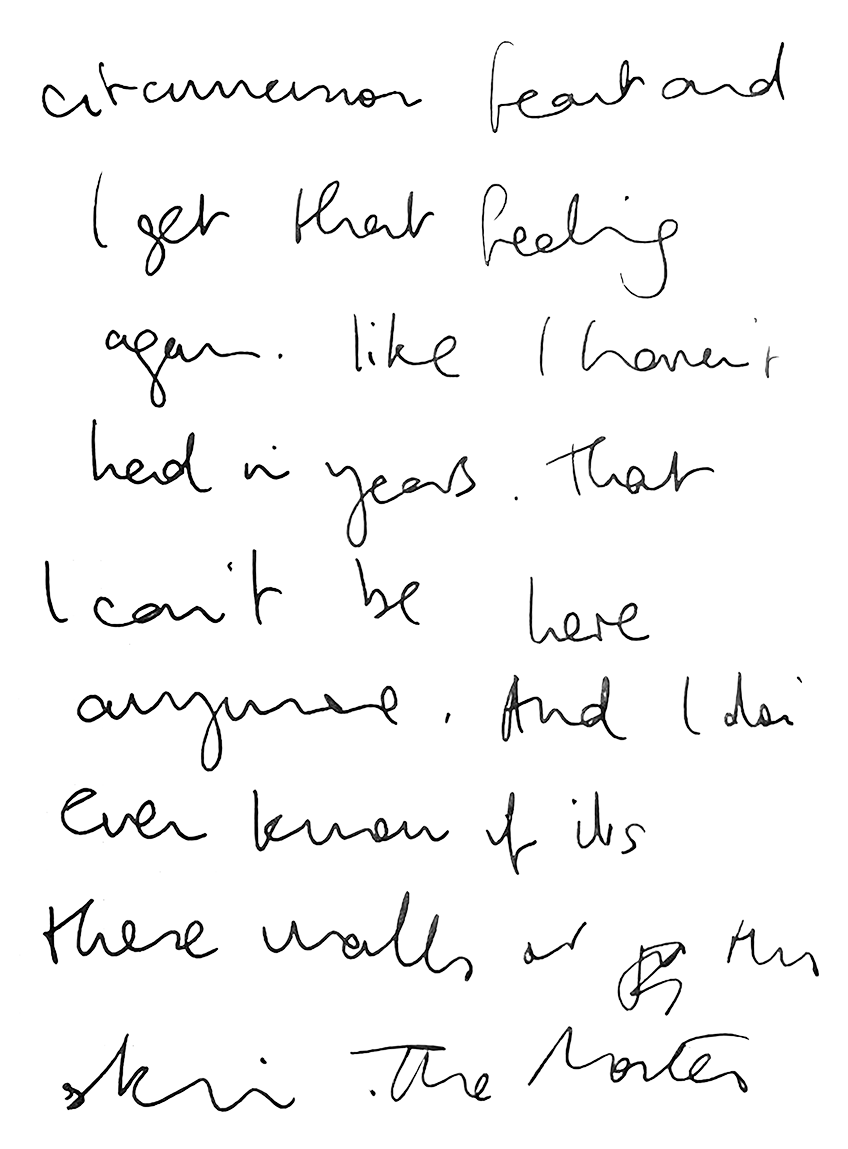 feast and
I get that feeling
again. like I haven't
had in years. That
I can't be here
anymore. And I don'
even know if its
these walls or this
skin. The